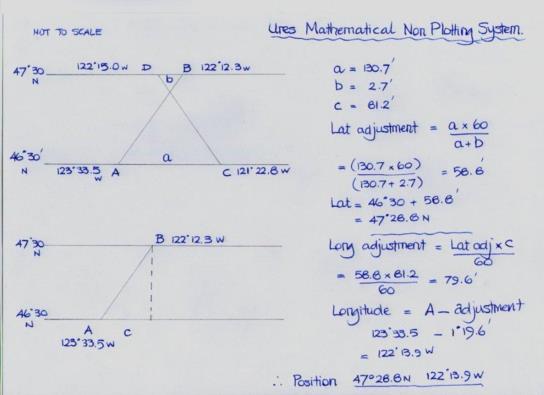 NOT TO SCALE
Ures Mathematical Non Plotting System.
47°30 N
122°15.0 W D B 122°12.3 W
b
46°30' N
123°33.5 W A a C 121°22.8 W
a = 130.7'
b = 2.7'
c = 81.2'
Lat adjustment = a x 60
a + b
= (130.7 x 60) = 58.8'
(130.7 + 2.7)
Lat = 46°30 + 58.8'
= 47°28.8 N
47°30 N
B 122°12.3 W
46°30 N
A C
123°33.5 W
Long adjustment = Lat adj x C
60
= 58.8 x 81.2 = 79.6'
60
Longitude = A – adjustment
123°33.5 – 1°19.6'
= 122°13.9 W
∴ Position 47°28.8N 122°13.9 W